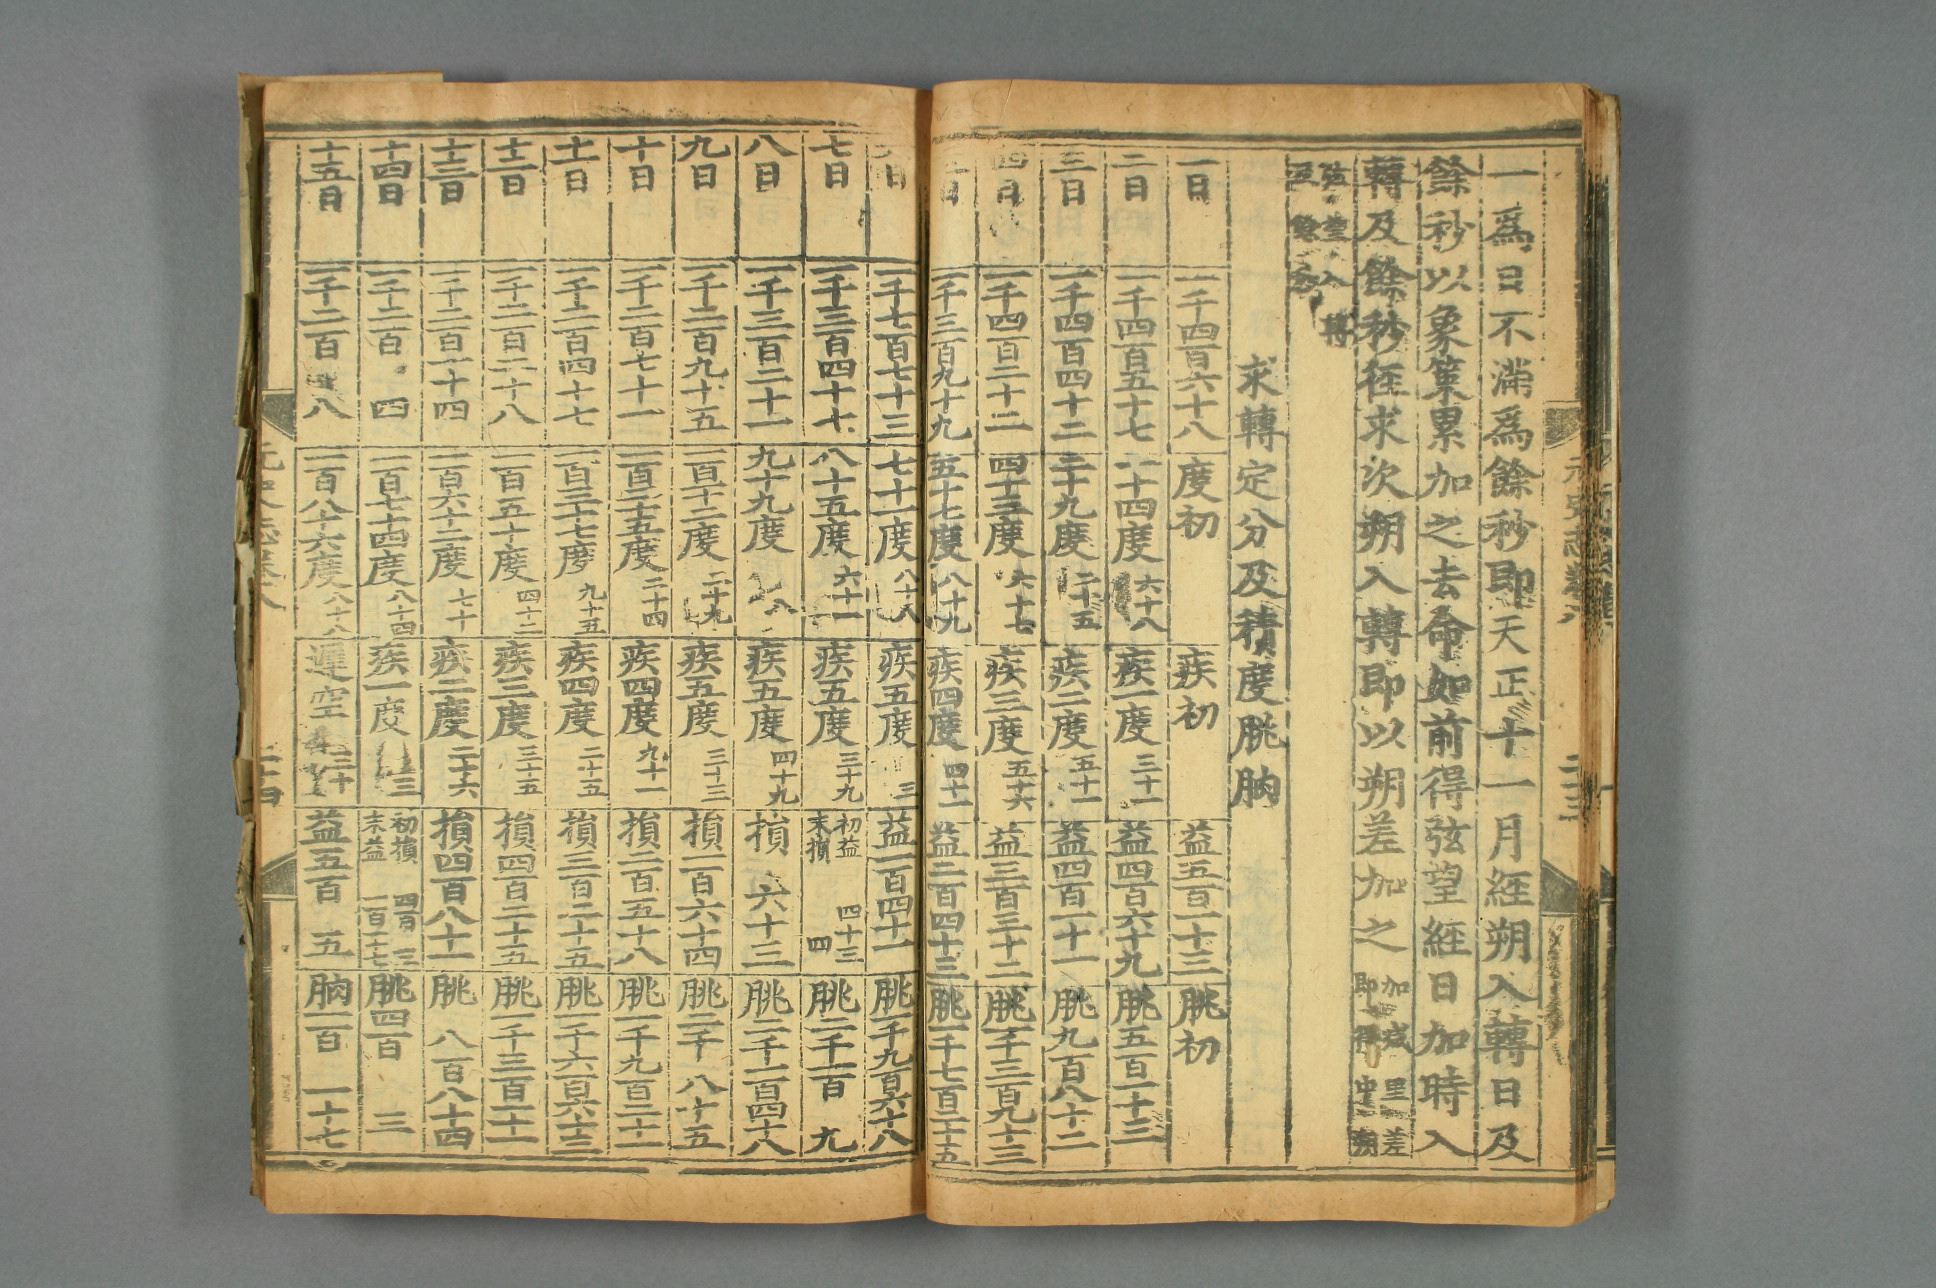 一爲日不滿爲餘秒即天正十一月經朔入轉日及
餘秒以象策累加之去命如前得弦望經日加時入
轉及餘秒徑求次朔入轉即以朔差加之加減里差
即得中朔
弦望入轉
及餘秒
求轉定分及積度朓朒
一日 一千四百六十八 度初 疾初 益五百一十三 朓初
二日 一千四百五十七 一十四度六十八 疾一度三十一 益四百六十九 朓五百一十三
三日 一千四百四十二 二十九度二十五 疾二度五十一 益四百一十一 朓九百八十二
四日 一千四百二十二 四十三度六十七 疾三度五十六 益三百三十二 朓一千三百九十三
五日 一千三百九十九 五十七度八十九 疾四度四十一 益二百四十三 朓一千七百二十五
六日 一千七百七十三 七十一度八十八 疾五度三 益一百四十一 朓一千九百六十八
七日 一千三百四十七 八十五度六十一 疾五度三十九 初益四十三 末損四 朓二千一百九
八日 一千三百二十一 九十九度八 疾五度四十九 損六十三 朓二千一百四十八
九日 一千二百九十五 一百一十二度二十九 疾五度三十三 損一百六十四 朓二千八十五
十日 一千二百七十一 一百二十五度二十四 疾四度九十一 損二百五十八 朓一千九百二十一
十一日 一千二百四十七 一百三十七度九十五 疾四度二十五 損三百三十五 朓一千六百六十三
十二日 一千二百二十八 一百五十度四十二 疾三度三十五 損四百二十五 朓一千三百二十一
十三日 一千二百一十四 一百六十二度七十 疾二度二十六 損四百八十一 朓八百八十四
十四日 一千二百四 一百七十四度八十四 疾一度三 初損四百三 末益一百一十七 朓四百三
十五日 一千二百八 一百八十六度八十八 遲空三十 益五百五 朒一百一十七